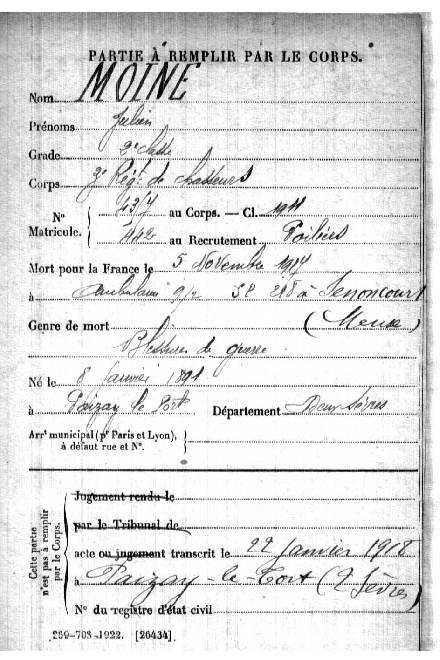 PARTIE À REMPLIR PAR LE CORPS.
Nom MOINE
Prénoms Julien
Grade 2e classe
Corps 3e Régt de chasseurs
No Matricule. 4317 au Corps. — Cl. 1911
442 au Recrutement Poitiers
Mort pour la France le 5 Novembre 1917
à Ambulance 9/2 SP 218 à Senoncourt
(Meuse)
Genre de mort
Blessures de guerre
Né le 8 Janvier 1891
à Paizay le Tort Département Deux Sèvres
Arrt municipal (pr Paris et Lyon),
à défaut rue et No.
Cette partie n'est pas à remplir par le Corps.
Jugement rendu le
par le Tribunal de
acte ou jugement transcrit le 22 Janvier 1918
à Paizay-le-Tort (2 Sèvres)
No du registre d'état civil
269-708-1922. [26434].